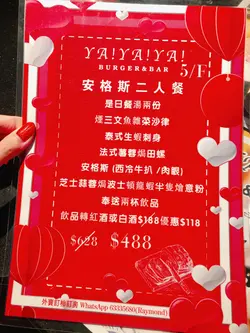 YA!YA!YA!
BURGER&BAR
5/F
安格斯二人餐
是日餐湯兩份
煙三文魚雜菜沙律
泰式生蝦刺身
法式薯蓉焗田螺
安格斯 (西冷牛扒 / 肉眼)
芝士蒜蓉焗波士頓龍蝦半隻燴意粉
奉送兩杯飲品
飲品轉紅酒或白酒$188優惠$118
$628 $488
外賣訂檯訂房 WhatsApp 63335680(Raymond)